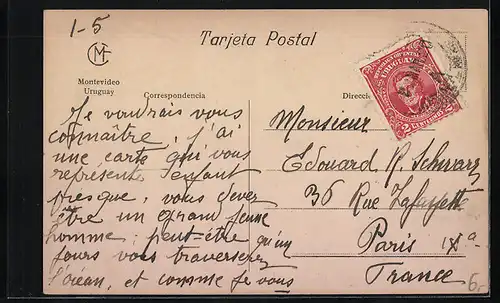 1-5
CMF
Tarjeta Postal
Montevideo
Uruguay
Correspondencia
Direcci
REPUBLICA ORIENTAL
URUGUAY
2 CENTESIMOS 2
Je voudrais vous
connaître, j'ai
une carte qui vous
représente enfant
presque, vous devez
être un grand jeune
homme; peut-être qu'un
jours vous traverserez
l'océan, et comme je vous
Monsieur
Edouard R. Schwarz
36 Rue Lafayette
Paris IXa
France